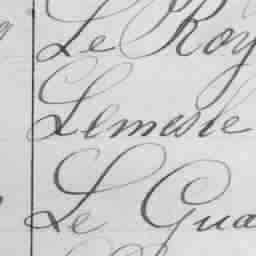 Le Roy
Lemesle
Le Gua